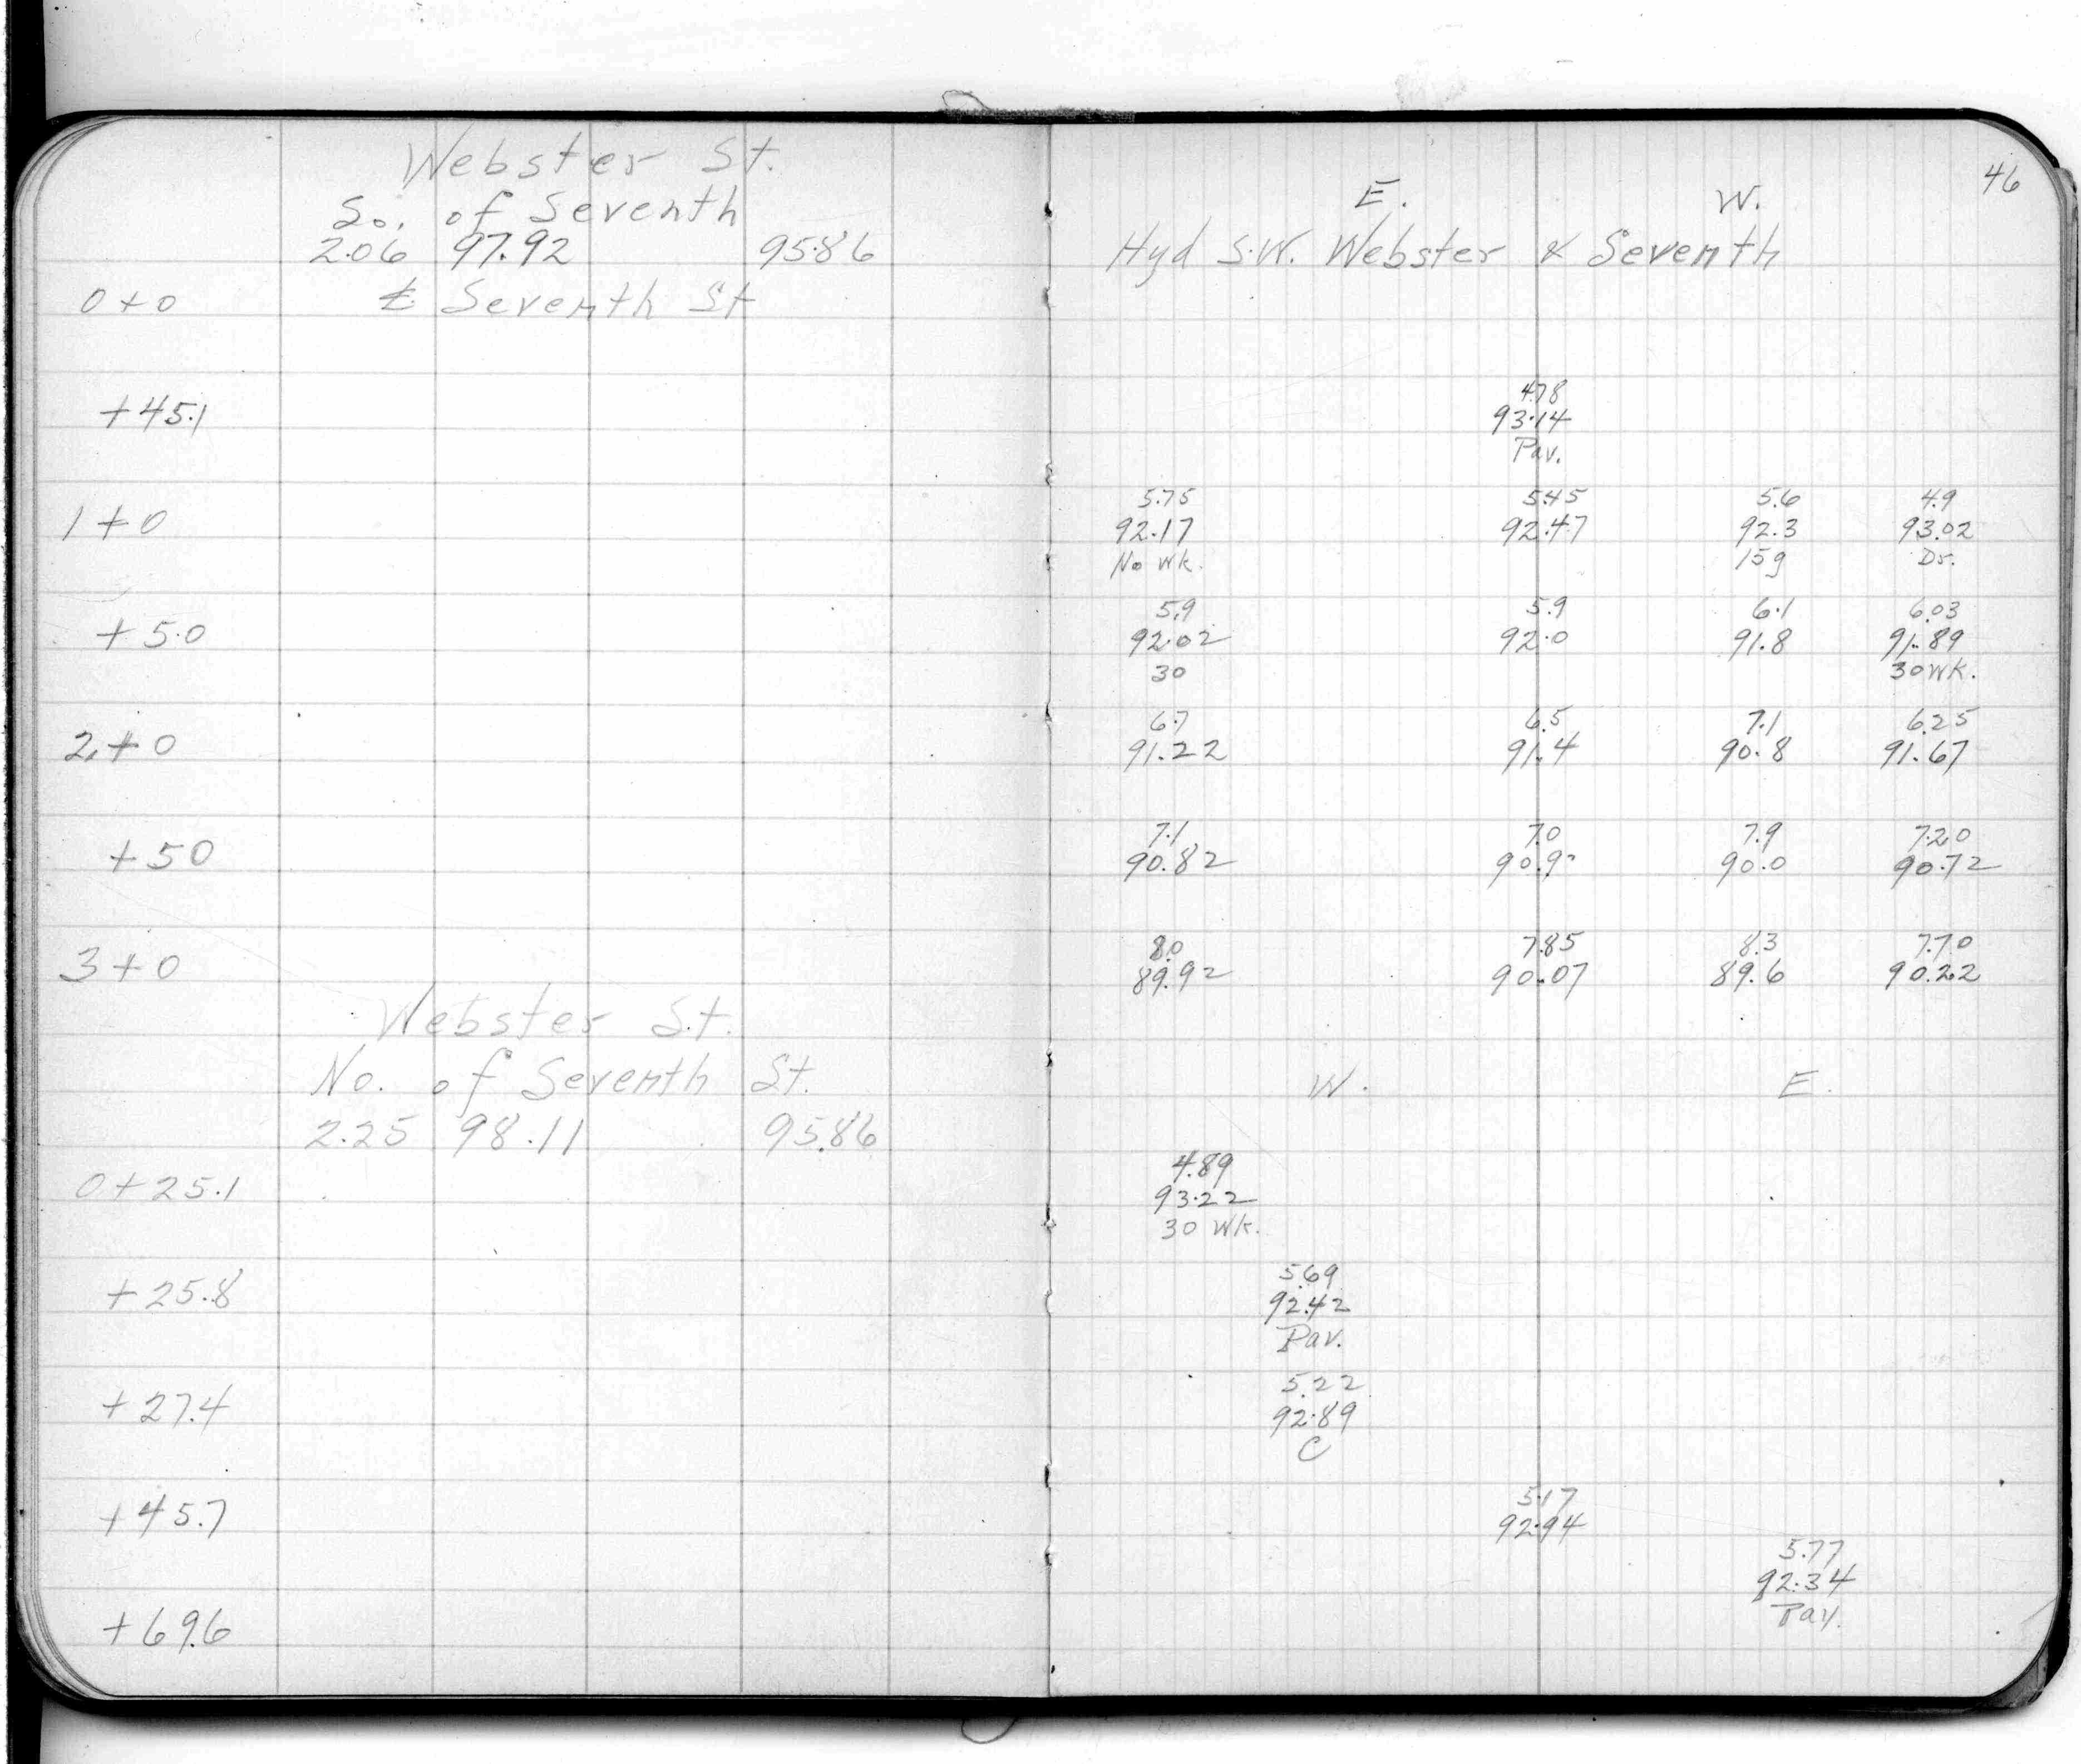 46
Webster St.
So. of Seventh
E. W.
2.06 97.92 95.86 Hyd S.W. Webster & Seventh
0+0 ℄ Seventh St
4.78
+45.1 93.14
Pav.
5.75 5.45 5.6 4.9
1+0 92.17 92.47 92.3 93.02
No Wk. 15g Dr.
5.9 5.9 6.1 6.03
+50 92.02 92.0 91.8 91.89
30 30 Wk.
6.7 6.5 7.1 6.25
2+0 91.22 91.4 90.8 91.67
7.1 7.0 7.9 7.20
+50 90.82 90.9 90.0 90.72
8.0 7.85 8.3 7.70
3+0 89.92 90.07 89.6 90.22
Webster St.
No. of Seventh St. W. E.
2.25 98.11 95.86
4.89
0+25.1 93.22
30 Wk.
5.69
+25.8 92.42
Pav.
5.22
+27.4 92.89
C
5.17
+45.7 92.94
5.77
92.34
+69.6 Pav.